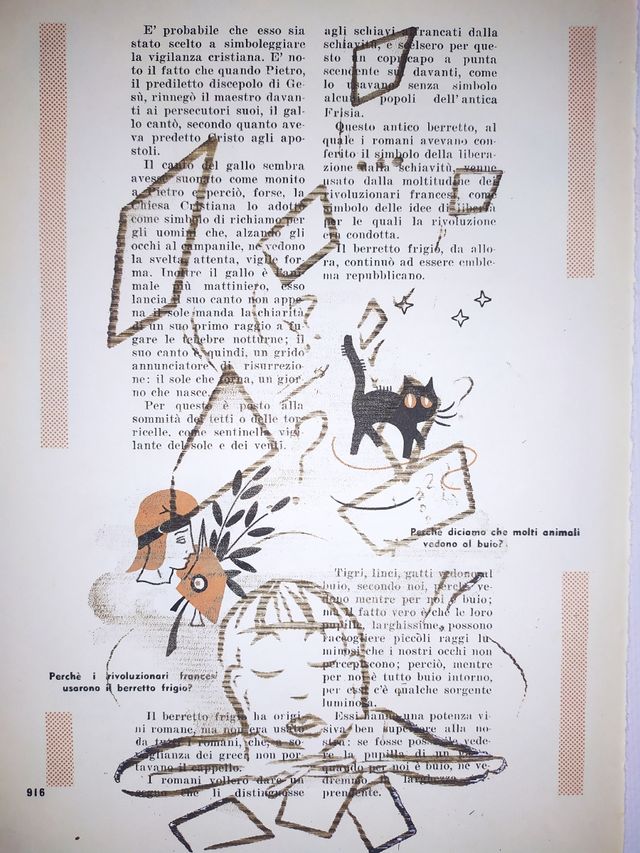 E' probabile che esso sia
stato scelto a simboleggiare
la vigilanza cristiana. E' no-
to il fatto che quando Pietro,
il prediletto discepolo di Ge-
sù, rinnegò il maestro davan-
ti ai persecutori suoi, il gal-
lo cantò, secondo quanto ave-
va predetto Cristo agli apo-
stoli.
Il canto del gallo sembra
avesse suonato come monito
a Pietro e perciò, forse, la
Chiesa Cristiana lo adottò
come simbolo di richiamo per
gli uomini che, alzando gli
occhi al campanile, ne vedono
la svelta, attenta, vigile for-
ma. Inoltre il gallo è l'ani-
male più mattiniero, esso
lancia il suo canto non appe-
na il sole manda la chiarità
di un suo primo raggio a fu-
gare le tenebre notturne; il
suo canto è, quindi, un grido
annunciatore di risurrezio-
ne: il sole che torna, un gior-
no che nasce.
Per questo è posto alla
sommità dei tetti o delle tor-
ricelle, come sentinella vigi-
lante del sole e dei venti.
Perchè i rivoluzionari frances
usarono il berretto frigio?
Il berretto frigio ha origi-
ni romane, ma non era usato
da tutti i romani, che, a so-
miglianza dei greci non por-
tavano il cappello.
I romani vollero dare un
segno che li distinguesse
agli schiavi affrancati dalla
schiavitù, e scelsero per que-
sto un copricapo a punta
scendente sul davanti, come
lo usavano senza simbolo
alcuni popoli dell'antica
Frisia.
Questo antico berretto, al
quale i romani avevano con-
ferito il simbolo della libera-
zione dalla schiavitù, venne
usato dalla moltitudine dei
rivoluzionari francesi, come
simbolo delle idee di libertà
per le quali la rivoluzione
era condotta.
Il berretto frigio, da allo-
ra, continuò ad essere emble-
ma repubblicano.
Perchè diciamo che molti animali
vedono al buio?
Tigri, linci, gatti vedono al
buio, secondo noi, perchè ve-
dono mentre per noi è buio;
ma il fatto vero è che le loro
pupille, larghissime, possono
raccogliere piccoli raggi lu-
minosi che i nostri occhi non
percepiscono; perciò, mentre
per noi è tutto buio intorno,
per essi c'è qualche sorgente
luminosa.
Essi hanno una potenza vi-
siva ben superiore alla no-
stra: se fosse possibile vede-
re la pupilla di un
quando per noi è buio, ne ve-
dremmo la larghezza
prendente.
916